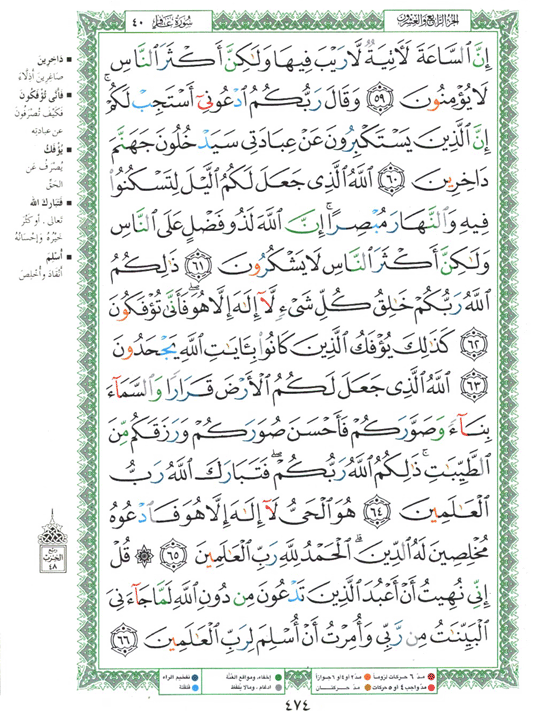 الجزء الرابع والعشرون
سورة غافر ٤٠
إِنَّ السَّاعَةَ لَآتِيَةٌ لَّا رَيْبَ فِيهَا وَلَٰكِنَّ أَكْثَرَ النَّاسِ
لَا يُؤْمِنُونَ ٥٩ وَقَالَ رَبُّكُمُ ادْعُونِي أَسْتَجِبْ لَكُمْ ۚ
إِنَّ الَّذِينَ يَسْتَكْبِرُونَ عَنْ عِبَادَتِي سَيَدْخُلُونَ جَهَنَّمَ
دَاخِرِينَ ٦٠ اللَّهُ الَّذِي جَعَلَ لَكُمُ اللَّيْلَ لِتَسْكُنُوا
فِيهِ وَالنَّهَارَ مُبْصِرًا ۚ إِنَّ اللَّهَ لَذُو فَضْلٍ عَلَى النَّاسِ
وَلَٰكِنَّ أَكْثَرَ النَّاسِ لَا يَشْكُرُونَ ٦١ ذَٰلِكُمُ
اللَّهُ رَبُّكُمْ خَالِقُ كُلِّ شَيْءٍ لَّا إِلَٰهَ إِلَّا هُوَ ۖ فَأَنَّىٰ تُؤْفَكُونَ
٦٢ كَذَٰلِكَ يُؤْفَكُ الَّذِينَ كَانُوا بِآيَاتِ اللَّهِ يَجْحَدُونَ
٦٣ اللَّهُ الَّذِي جَعَلَ لَكُمُ الْأَرْضَ قَرَارًا وَالسَّمَاءَ
بِنَاءً وَصَوَّرَكُمْ فَأَحْسَنَ صُوَرَكُمْ وَرَزَقَكُم مِّنَ
الطَّيِّبَاتِ ۚ ذَٰلِكُمُ اللَّهُ رَبُّكُمْ ۖ فَتَبَارَكَ اللَّهُ رَبُّ
الْعَالَمِينَ ٦٤ هُوَ الْحَيُّ لَا إِلَٰهَ إِلَّا هُوَ فَادْعُوهُ
مُخْلِصِينَ لَهُ الدِّينَ ۗ الْحَمْدُ لِلَّهِ رَبِّ الْعَالَمِينَ ٦٥ ۞ قُلْ
إِنِّي نُهِيتُ أَنْ أَعْبُدَ الَّذِينَ تَدْعُونَ مِن دُونِ اللَّهِ لَمَّا جَاءَنِيَ
الْبَيِّنَاتُ مِن رَّبِّي وَأُمِرْتُ أَنْ أُسْلِمَ لِرَبِّ الْعَالَمِينَ ٦٦
■ دَاخِرِينَ
صَاغِرِينَ أذِلَّاءَ
■ فَأَنَّى تُؤْفَكُونَ
فَكَيْفَ تُصْرَفُونَ
عن عبادته
■ يُؤْفَكُ
يُصْرَفُ عَنِ
الحَقِّ
■ فَتَبَارَكَ الله
تعالى . أو كَثُرَ
خَيْرُهُ وإحْسَانُهُ
■ أُسْلِمَ
أنْقَادَ وأُخْلِصَ
ربع
الحزب
٤٨
مدّ ٦ حركات لزوماً
مدّ ٢ أو ٤ أو ٦ جوازاً
إخفاء، ومواقع الغُنَّة
تفخيم الراء
مدّ واجب ٤ أو ٥ حركات
مدّ حركتان
إدغام، وما لا يُلفظ
قلقلة
٤٧٤